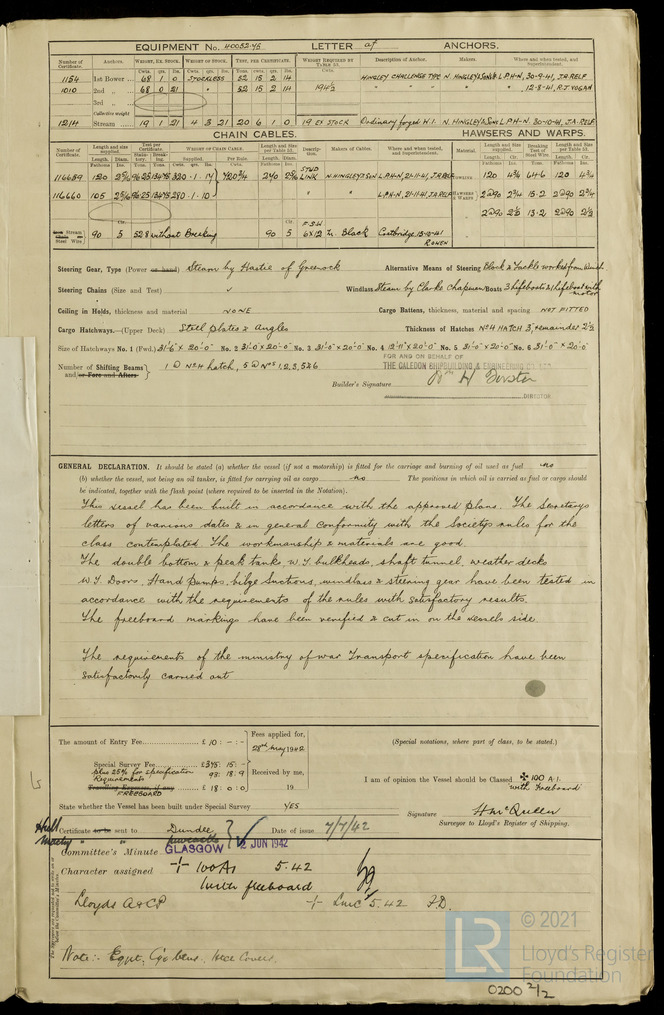 EQUIPMENT No. 40052.45 LETTER af ANCHORS.
Number of Certificate. Anchors. WEIGHT, EX. STOCK. WEIGHT OF STOCK. TEST, PER CERTIFICATE. WEIGHT REQUIRED BY TABLE 53. Description of Anchor. Makers. Where and when tested, and Superintendent.
1154 1st Bower ... 68 1 0 STOCKLESS 52 15 2 14 HINGLEY CHALLENGE TYPE N. HINGLEY & SONS LTD L.P.H-N, 30-9-41, J.A. RELF
1010 2nd " ... 68 0 21 " 52 15 2 14 " " " " " 12-8-41, R.J. VOGAN
3rd " ...
Collective weight
1214 Stream 19 1 21 4 3 21 20 6 1 0 19 EX STOCK Ordinary forged W.I. N. HINGLEY & SONS L.P.H-N, 30-10-41, J.A. RELF
CHAIN CABLES. HAWSERS AND WARPS.
Number of Certificate. Length and size supplied. Test per Certificate. WEIGHT OF CHAIN CABLE. Length and size per Table 53. Description. Makers of Cables. Where and when tested, and Superintendent. Material. Length and size supplied. Breaking Test of Steel Wire Length and size per Table 53.
116659 120 2 5/16 STUD LINK N. HINGLEY & SON L.P.H-N, 21-11-41, J.A. RELF 120 4 3/4 64.6 120 4 3/4
116660 105 2 5/16 280 . 1 . 10 " " L.P.H-N, 21-11-41, J.A. RELF HAWSERS & WARPS 2 @ 90 2 3/4 15.2 2 @ 90 2 3/4
2 @ 90 2 1/2 13.2 2 @ 90 2 1/2
Stream Steel Wire 90 5 52.8 without Breaking 90 5 F.S.W 6x12 W. Black Coatbridge 13-10-41
Steering Gear, Type (Power or hand) Steam by Hastie of Greenock Alternative Means of Steering Block & Tackle worked from Winch
Steering Chains (Size and Test) ✓ Windlass Steam by Clarke Chapman Boats 3 lifeboats & 1 lifeboat with motor
Ceiling in Holds, thickness and material NONE Cargo Battens, thickness, material and spacing NOT FITTED
Cargo Hatchways.—(Upper Deck) Steel plates & Angles Thickness of Hatches No 4 HATCH 3", remainder 2 1/2
Size of Hatchways No. 1 (Fwd.) 31'-6" x 20'-0" No. 2 31'-0" x 20'-0" No. 3 31'-0" x 20'-0" No. 4 12'-11" x 20'-0" No. 5 31'-0" x 20'-0" No. 6 31'-0" x 20'-0"
Number of Shifting Beams and/or Fore and Afters 1 @ No 4 hatch, 5 @ Nos 1, 2, 3, 5 & 6
FOR AND ON BEHALF OF
THE CALEDON SHIPBUILDING & ENGINEERING CO. LTD
Builder's Signature
DIRECTOR
GENERAL DECLARATION. It should be stated (a) whether the vessel (if not a motorship) is fitted for the carriage and burning of oil used as fuel no
(b) whether the vessel, not being an oil tanker, is fitted for carrying oil as cargo no The positions in which oil is carried as fuel or cargo should
be indicated, together with the flash point (where required to be inserted in the Notation).
This vessel has been built in accordance with the approved plans. The Secretarys
letters of various dates & in general conformity with the Societys rules for the
class contemplated. The workmanship & materials are good.
The double bottom & peak tanks, W.T. bulkheads, shaft tunnel, weather decks
W.T. Doors, Hand Pumps, bilge Suctions, windlass & steering gear have been tested in
accordance with the requirements of the rules with Satisfactory results.
The freeboard markings have been verified & cut in on the vessels side.
The requirements of the ministry of war Transport specification have been
Satisfactorily carried out
The amount of Entry Fee £ 10 : - : - Fees applied for, 28th May 1942
(Special notations, where part of class, to be stated.)
Special Survey Fee £375 : 15 : -
plus 25% for specification Requirements 93 : 18 : 9 Received by me,
Travelling Expenses, if any FREEBOARD £ 18 : 0 : 0 19
I am of opinion the Vessel should be Classed ✠ 100 A.1. with Freeboard
State whether the Vessel has been built under Special Survey YES
Signature H McQueen
Surveyor to Lloyd's Register of Shipping.
Hull Certificate to be sent to Dundee Date of issue 7/7/42
Mchy " " Newcastle
GLASGOW 2 JUN 1942
Committee's Minute
Character assigned + 100A1 5.42
with freeboard
Lloyds A & CP + LMC 5.42 F.D.
Note:- Eqpt.
© 2021
LR Lloyd's Register
Foundation
0200 2/2